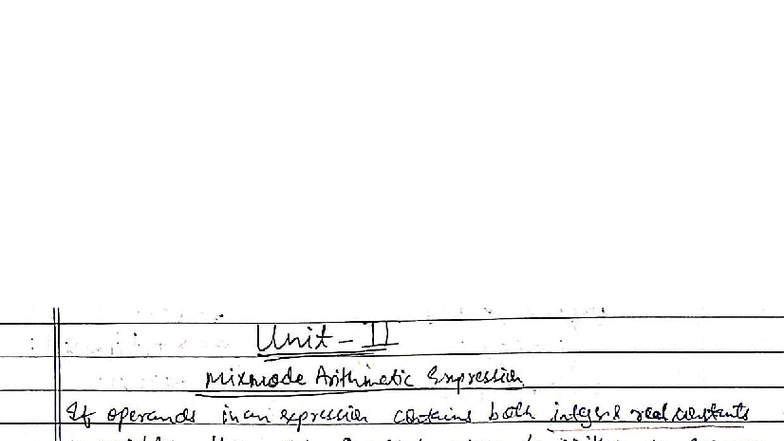 Unit - II
Mixmode Arithmatic Expression
If operands in an expression contains both integer & real constants